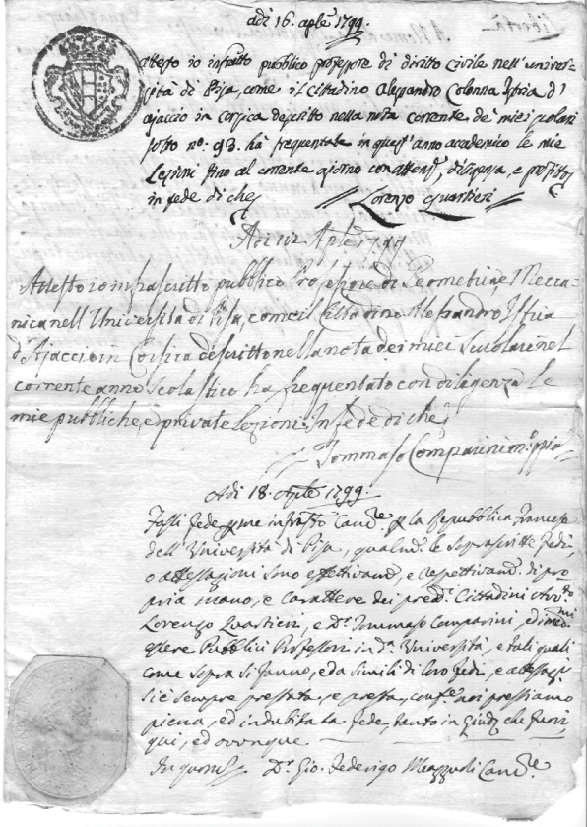 Adì 16. aple 1799.
Attesto io infratto pubblico professore di diritto civile nell'univer-
sità di Pisa, come il cittadino Alessandro Colonna Istria d'
Ajaccio in Corsica descritto nella nota corrente de' miei scolari
sotto n°: 93. hà frequentate in quest'anno accademico le mie
Lezioni fino al corrente giorno con attenz, diligenza, e profitto
in fede di che
Lorenzo Quartieri
Adi Aple 1799
Attesto io infrascritto pubblico Professore di Geometria, e Mecca-
nica nell Università di Pisa, come il Cittadino Alessandro Istria
d'Ajaccio in Corsica descritto nella nota dei miei Scolari nel
corrente anno Scolastico ha frequentato con diligenza le
mie pubbliche, e private Lezioni. In fede di che
Tommaso Comparini
Adì 18. Aple 1799.
Fassi fede infratto Cance la Repubblica Francese
dell'Università di Pisa, qualm. le soprascritte Fedi,
o attestazioni sono effettivam, e respettivam. di pro-
pria mano, e carattere dei pred. Cittadini
Lorenzo Quartieri, e D. Tommaso Comparini, ed i med.
essere Pubblici Professori in d. Università, e tali quali
come sopra si fanno, e da simili di loro fedi, e attestaz.
si è sempre prestata, e presta, noi prestiamo
piena, ed indubitata fede, tanto in Giudiz che fuori,
qui, ed ovunque.
In quorum D. Gio. Federigo Cance.